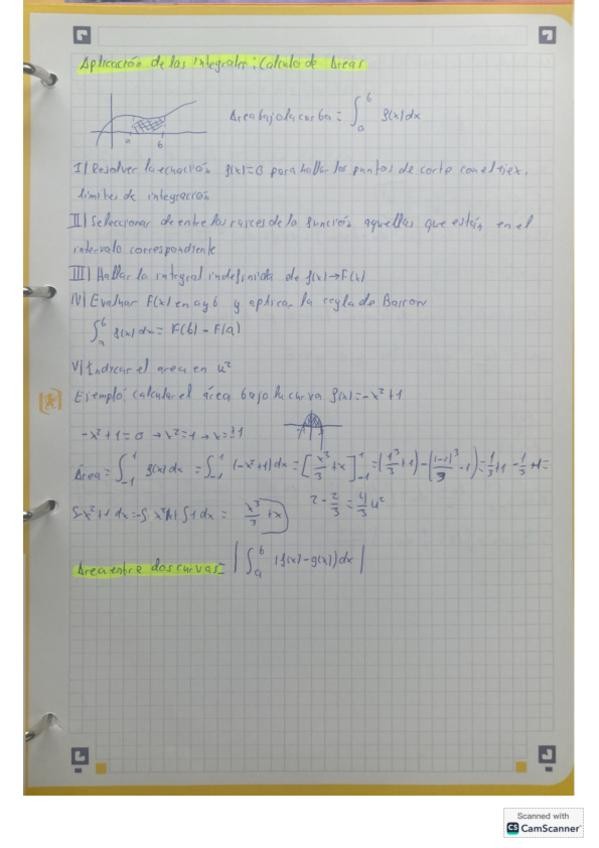 Aplicación de las integrales: Calculo de Areas
Area bajo la curba = ∫ₐᵇ f(x) dx
a b
I) Resolver la ecuación f(x)=0 para hallar los puntos de corte con el eje x.
límites de integración
II) Seleccionar de entre las raices de la función aquellas que están en el
intervalo correspondiente
III) Hallar la integral indefinida de f(x) → F(x)
IV) Evaluar F(x) en a y b y aplicar la regla de Barrow
∫ₐᵇ f(x) dx = F(b) - F(a)
V) Indicar el area en u²
Ejemplo: calcular el área bajo la curva f(x) = -x²+1
-x²+1=0 → x²=1 → x=±1
Área = ∫₋₁¹ f(x) dx = ∫₋₁¹ (-x²+1) dx = [x³/3 + x]₋₁¹ = (1³/3 + 1) - ((-1)³/3 - 1) = 1/3 + 1 - 1/3 + 1 =
∫-x²+1 dx = -∫x² + ∫1 dx = x³/3 + x
2 - 2/3 = 4/3 u²
Area entre dos curvas = |∫ₐᵇ (f(x) - g(x)) dx|
Scanned with
CS CamScanner